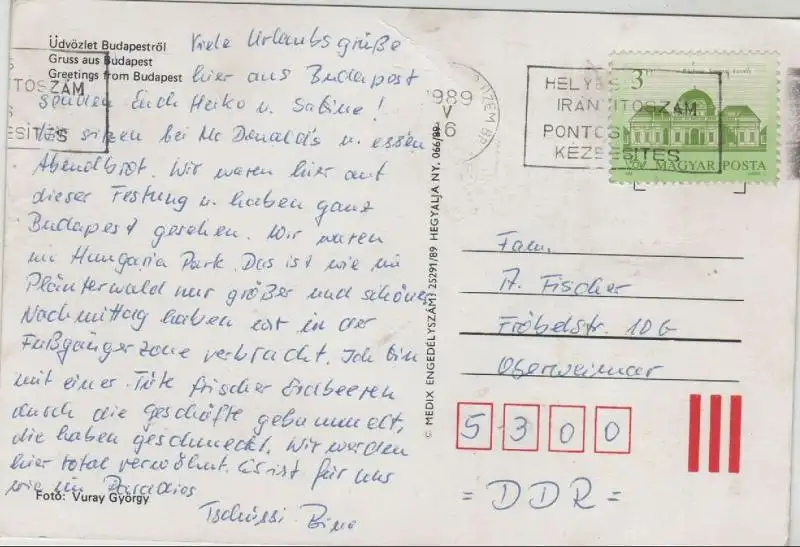 Üdvözlet Budapestről
Gruss aus Budapest
Greetings from Budapest
Viele Urlaubsgrüße
hier aus Budapest
senden Euch Heiko u. Sabine!
Wir sitzen bei Mc Donald's u. essen
Abendbrot. Wir waren hier auf
dieser Festung u. haben ganz
Budapest gesehen. Wir waren
im Hungaria Park. Das ist wie im
Plänterwald nur größer und schöner
Nachmittag haben wir in der
Fußgängerzone verbracht. Ich bin
mit einer Tüte frischer Erdbeeren
durch die Geschäfte gebummelt,
die haben geschmeckt. Wir werden
hier total verwöhnt. Es ist für uns
wie im Paradies
Tschüssi Bine
Foto: Vuray György
© MEDIX ENGEDÉLYSZÁM: 25291/89 HEGYALJA NY. 066/89
TOSZÁM
ESÍTÉS
1989
V
6
HELYES
IRÁNYÍTOSZÁM
PONTOS
KÉZBESÍTÉS
3
MAGYAR POSTA
Fam.
A. Fischer
Fröbelstr. 10G
Oberweimar
5300
= DDR =